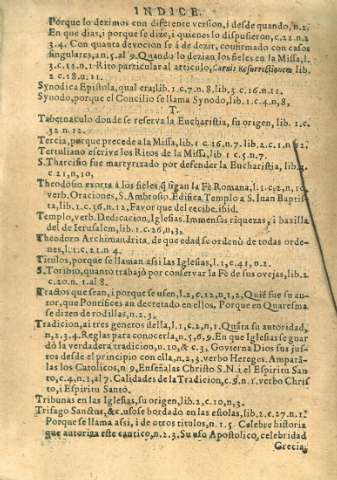 INDICE.
Porque lo dezimos con diferente version, i desde quando, n.2.
En que dias, i porque se dize, i quienes lo dispusieron, c.22.n.2
3.4. Con quanta devocion se á de dezir, confirmado con casos
singulares, an.5.al 9. Quando lo dezian los fieles en la Missa, l.
3.c.12.n.1. Rito particular al articulo, Carnis Resurrectionem lib.
2.c.18.n.11.
Synodica Epistola, qual era, lib.1.c.7.n.8, lib.3.c.16.n.12.
Synodo, porque el Concilio se llama Synodo, lib.1.c.4.n,8,
T.
Tabernaculo donde se reserva la Eucharistia, su origen, lib.2.c.
32.n.12.
Tercia, porque precede a la Missa, lib.1.c.16.n.7. lib.2.c.1.n.2.
Tertuliano escrive los Ritos de la Missa, lib.1.c.5.n.7.
S. Tharsicio fue martyrizado por defender la Eucharistia, lib.
c.21,n,10,
Theodosio exorta á los fieles, q̃ sigan la Fè Romana, l.1.c.2,n,10.
verb. Oraciones, S. Ambrosio. Edifica Templo a S. Iuan Baptis-
ta, lib.2.c.36.n.12. Favor que del recibe, ibid.
Templo, verb. Dedicacion, Iglesias. Immensas riquezas, i baxilla
del de Ierusalem, lib.1.c.26.n,3,
Theodoro Archimandrita, de que edad se ordenò de todas orde-
nes, l.1.c.21.n.4
Titulos, porque se llaman assi las Iglesias, l.1,c.41,n.2.
S. Toribio, quanto trabajò por conservar la Fè de sus ovejas, lib.2
c.20.n.1.al 8.
Tratados que sean, i porque se usen, l.2,c,12,n,1,2, Quiē fue su au-
tor, que Pontifices an decretado en ellos. Porque en Quaresma
se dizen de rodillas, n.2.3.
Tradicion, ai tres generos della, l.1,c,2,n,1. Quāta su autoridad,
n,2.3.4. Reglas para conocerla, n,5,6,9. En que Iglesias se guar-
dò la verdadera tradicion, n.10, & c.3, Govierna Dios sus jus-
tos desde el principio con ella, n,2,3. verbo Hereges. Ampará-
las los Catolicos, n 9, Enseñalas Christo S.N. i el Espiritu San-
to, c.4.n.2, al 7. Calidades de la Tradicion, c.5.n.1. verbo Chris
to, i Espiritu Santo.
Tribunas en las Iglesias, su origen, lib.2.c.10,n,3.
Trisago Sanctus, &c. usose bordado en las estolas, lib.2.c.27.n.1.
Porque se llama assi, i de otros titulos, n.1.5. Celebre historia
que autoriza este cantico, n.2.3. Su uso Apostolico, celebridad
Grecia,